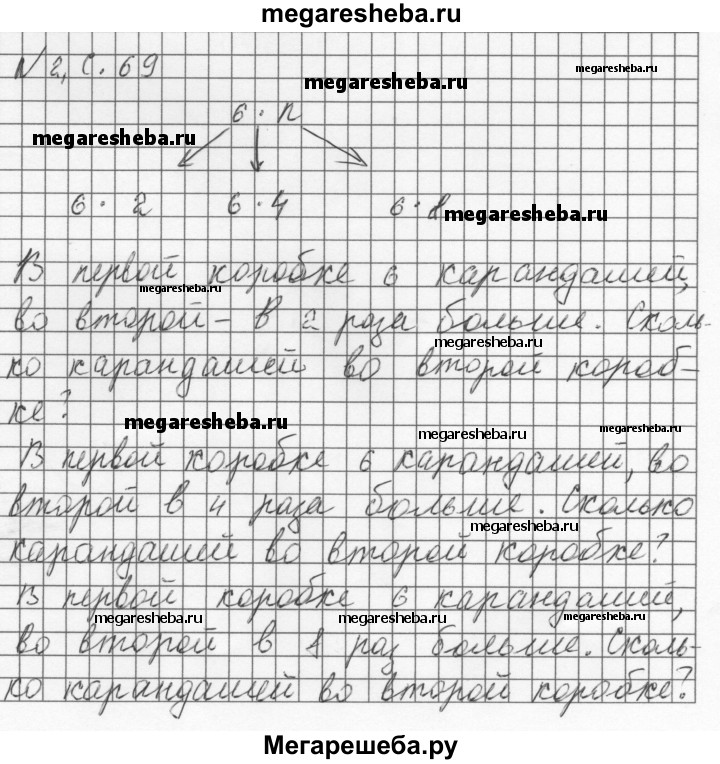 megaresheba.ru
N 2, С. 69
megaresheba.ru
megaresheba.ru
6 · n
megaresheba.ru
6 · 2 6 · 4 6 · 8
megaresheba.ru
В первой коробке 6 карандашей,
megaresheba.ru
во второй – в 2 раза больше. Сколь-
megaresheba.ru
ко карандашей во второй короб-
ке?
megaresheba.ru
megaresheba.ru
megaresheba.ru
В первой коробке 6 карандашей, во
второй в 4 раза больше. Сколько
megaresheba.ru
карандашей во второй коробке?
В первой коробке 6 карандашей,
megaresheba.ru
megaresheba.ru
megaresheba.ru
во второй в 8 раз больше. Сколь-
ко карандашей во второй коробке?
Мегарешеба.ру